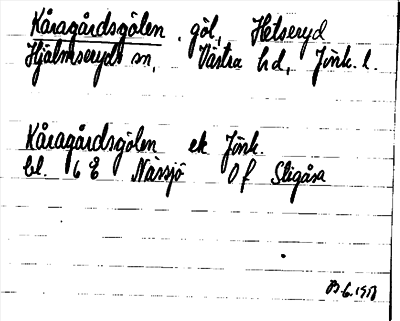 Kåragårdsgölen, göl, Hetseryd
Hjälmseryds sn, Västra hd, Jönk. l.
Kåragårdsgölen ek Jönk.
bl. 6 E Nässjö 0 f Sligåsa
1958